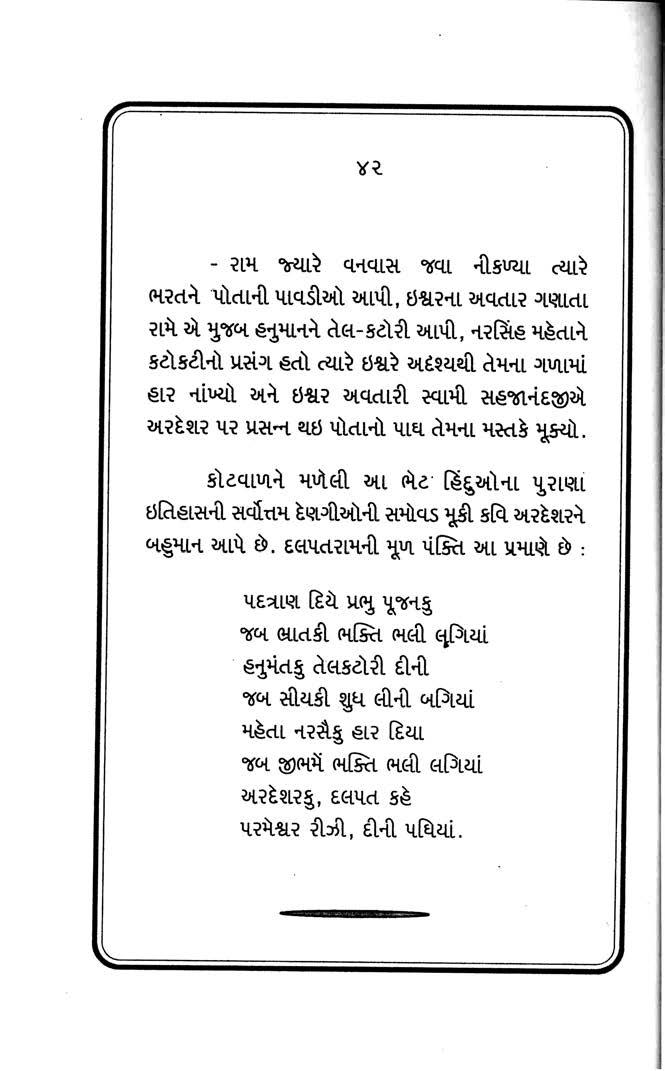 ૪૨
- રામ જ્યારે વનવાસ જવા નીકળ્યા ત્યારે
ભરતને પોતાની પાવડીઓ આપી, ઇશ્વરના અવતાર ગણાતા
રામે એ મુજબ હનુમાનને તેલ-કટોરી આપી, નરસિંહ મહેતાને
કટોકટીનો પ્રસંગ હતો ત્યારે ઇશ્વરે અદૃશ્યથી તેમના ગળામાં
હાર નાંખ્યો અને ઇશ્વર અવતારી સ્વામી સહજાનંદજીએ
અરદેશર પર પ્રસન્ન થઇ પોતાનો પાઘ તેમના મસ્તકે મૂક્યો.
કોટવાળને મળેલી આ ભેટ હિંદુઓના પુરાણા
ઇતિહાસની સર્વોત્તમ દેણગીઓની સમોવડ મૂકી કવિ અરદેશરને
બહુમાન આપે છે. દલપતરામની મૂળ પંક્તિ આ પ્રમાણે છે :
પદત્રાણ દિયે પ્રભુ પૂજનકુ
જબ ભ્રાતકી ભક્તિ ભલી લગિયાં
હનુમંતકુ તેલકટોરી દીની
જબ સીયકી શુધ લીની બગિયાં
મહેતા નરસૈકુ હાર દિયા
જબ જીભમેં ભક્તિ ભલી લગિયાં
અરદેશરકુ, દલપત કહે
પરમેશ્વર રીઝી, દીની પઘિયાં.